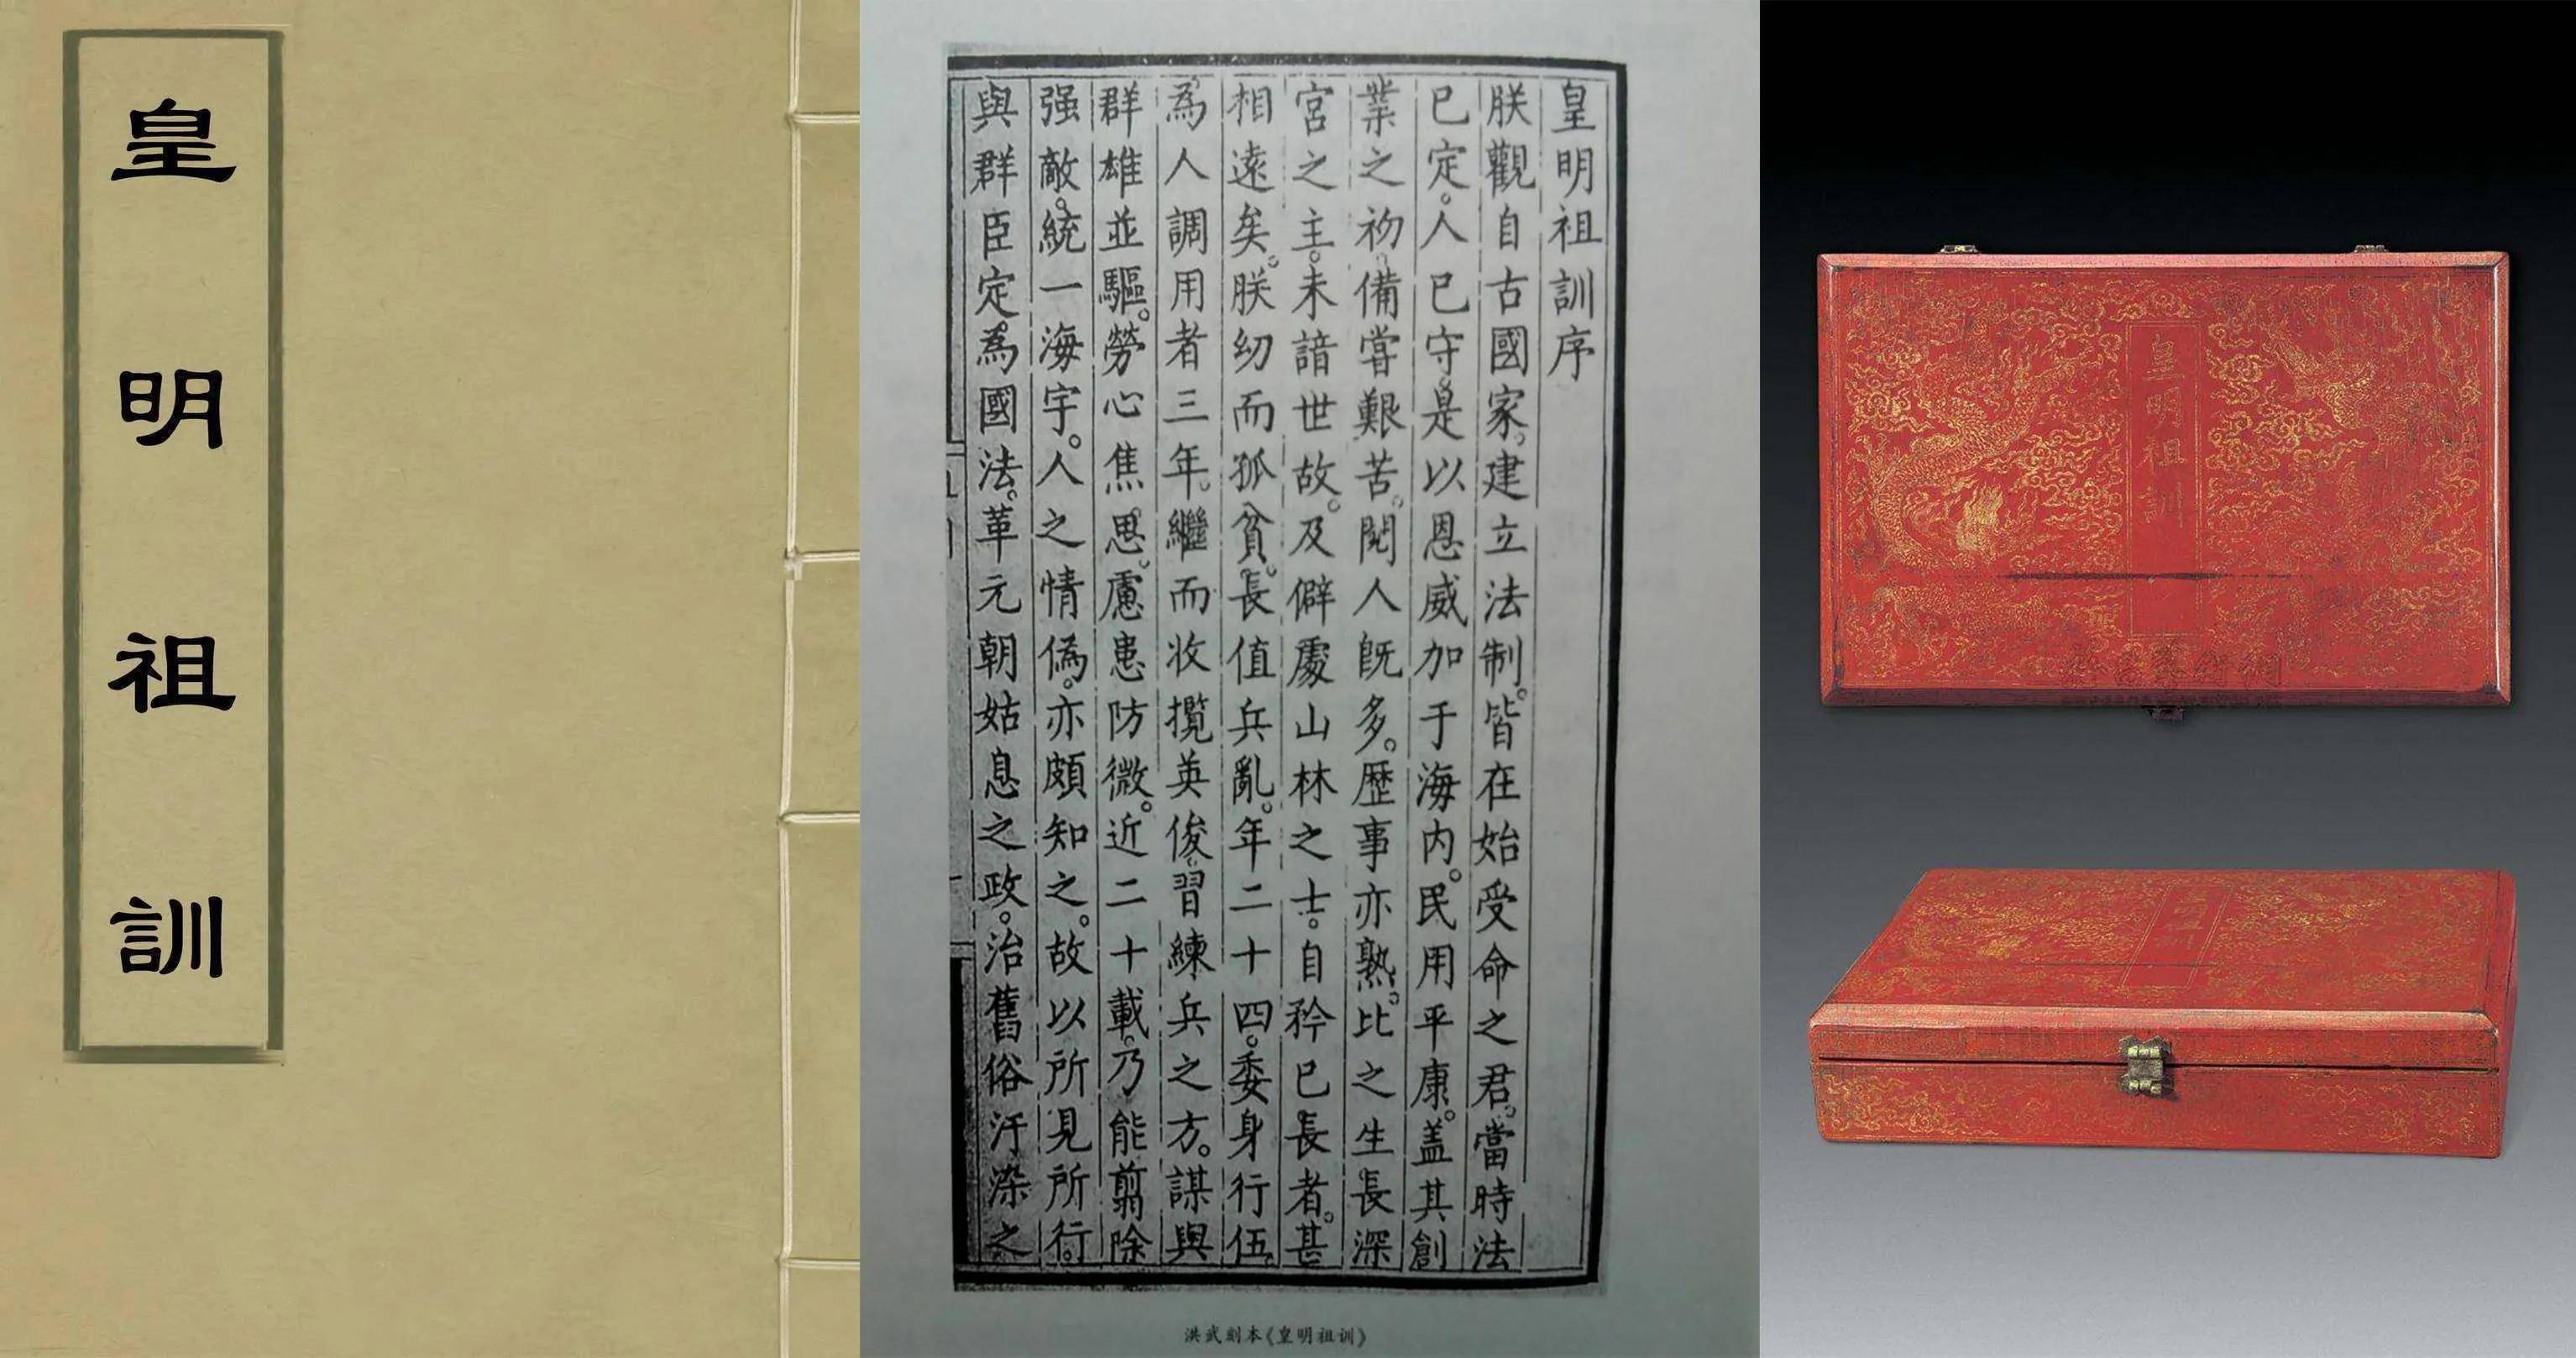 皇明祖訓
皇明祖訓序
朕觀自古國家。建立法制。皆在始受命之君。當時法
已定。人已守。是以恩威加于海内。民用平康。盖其創
業之初。備嘗艱苦。閱人旣多。歷事亦熟。比之生長深
宮之主。未諳世故。及僻處山林之士。自矜已長者。甚
相遠矣。朕幼而孤貧。長值兵亂。年二十四。委身行伍。
爲人調用者三年。繼而收攬英俊。習練兵之方。謀與
群雄並驅。勞心焦思。慮患防微。近二十載。乃能剪除
强敵。統一海宇。人之情僞。亦頗知之。故以所見所行。
與群臣定爲國法。革元朝姑息之政。治舊俗汙染之
洪武刻本《皇明祖训》
皇明祖訓